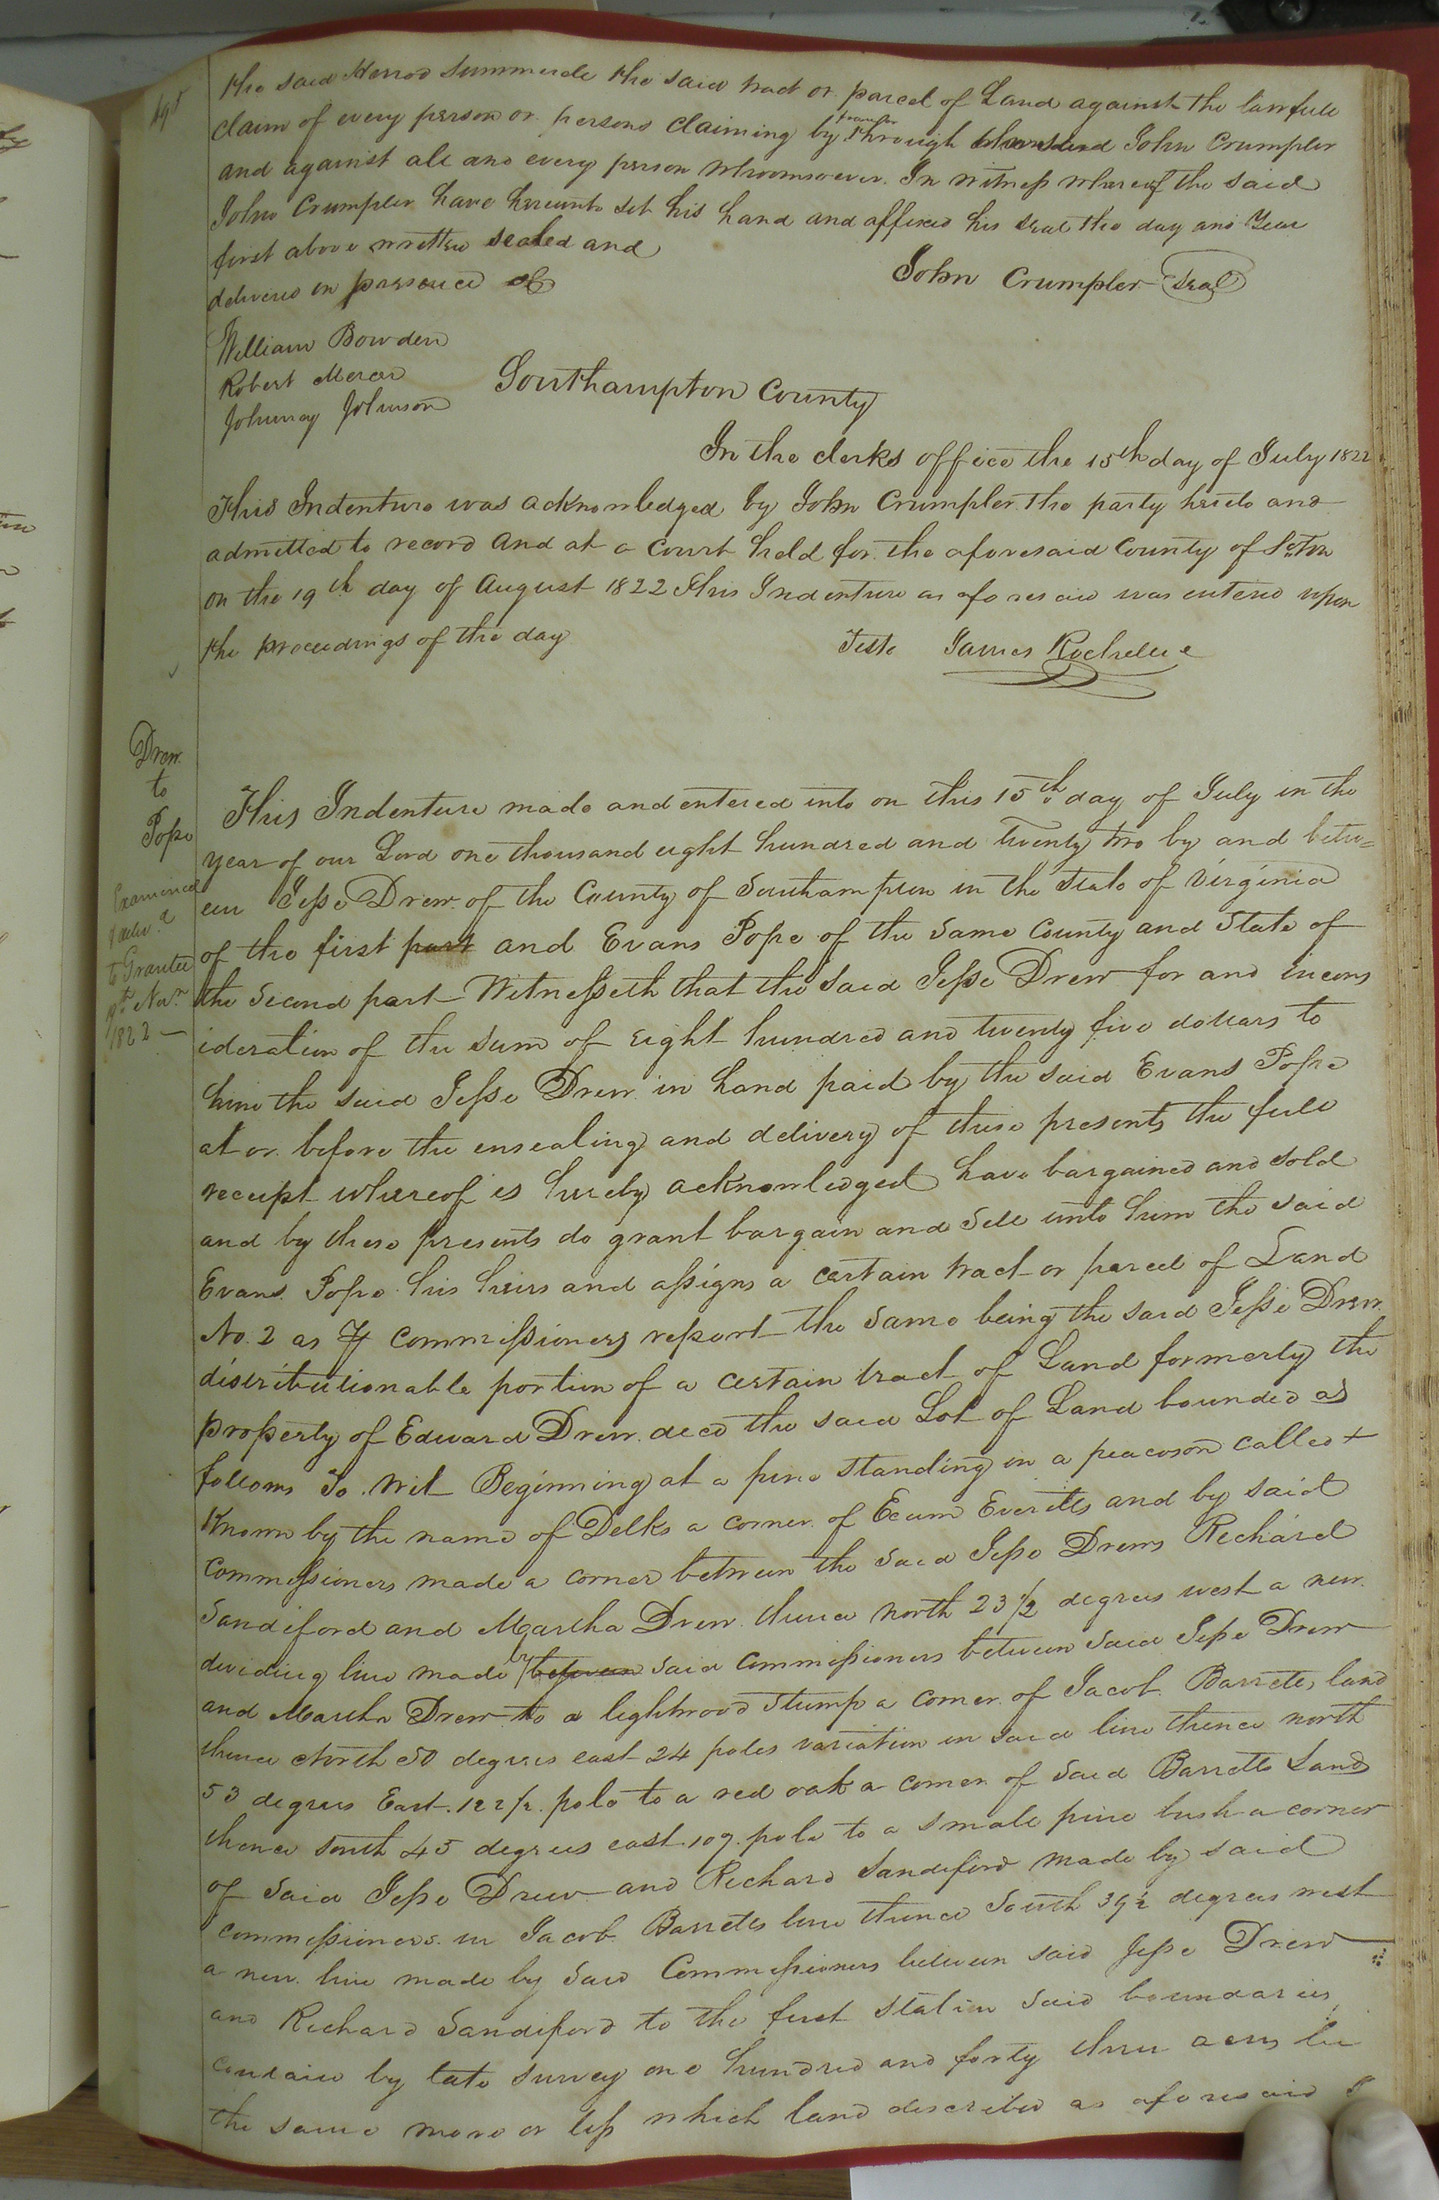 the said Herrod Summerele the said tract or parcel of Land against the lawfull
claim of every person or persons claiming by through John Crumpler
and against all and every person whoomsoever. In witness whereof the said
John Crumpler have hereunto set his hand and affixed his seal the day and Year
first above written sealed and
delivered in presence of
John Crumpler Seal
William Bowden
Robert Mercer
Johnson
Southampton County
In the clerks office the 15th day of July 1822
This Indenture was acknowledged by John Crumpler the party hereto and
admitted to record and at a Court held for the aforesaid County of
on the 19th day of August 1822 This Indenture as aforesaid was entered upon
the proceedings of the day
Teste James Rochelle
Drew
to
Pope
Examined
& deliv.d
to Grantee
Novr
1822
This Indenture made and entered into on this 15th day of July in the
year of our Lord one thousand eight hundred and twenty two by and betw=
een Jesse Drew of the County of Southampton in the State of Virginia
of the first part and Evans Pope of the same County and State of
the second part Witnesseth that the said Jesse Drew for and in cons
ideration of the sum of eight hundred and twenty five dollars to
him the said Jesse Drew in hand paid by the said Evans Pope
at or before the ensealing and delivery of these presents the full
receipt whereof is hereby acknowledged have bargained and sold
and by these presents do grant bargain and sell unto him the said
Evans Pope his heirs and assigns a certain tract or parcel of Land
No. 2 as commissioners report the same being the said Jesse Drew
distributionable portion of a certain tract of Land formerly the
property of Edward Drew decd the said Lot of Land bounded as
follows To Wit Beginning at a pine standing in a peacoson called +
Known by the name of Delks a corner of Exum Everitts and by said
commissioners made a corner between the said Jesse Drews Richard
Sandiford and Martha Drew thence north 23 1/2 degrees west a new
deviding line made by between said commissioners between said Jesse Drew
and Martha Drew to a lightwood stump a corner of Jacob Barretts land
thence North 50 degrees east 24 poles variation in said line thence north
53 degrees East 122 1/2 pole to a red oak a corner of said Barretts Land
thence south 45 degrees east 109 pole to a small pine bush a corner
of said Jesse Drew and Richard Sandiford made by said
commissioners in Jacob Barretts line thence South 39 1/2 degrees west
a new line made by said Commissioners between said Jesse Drew
and Richard Sandiford to the first station said boundaries
contain by late survey one hundred and forty three acres be
the same more or less which land described as aforesaid